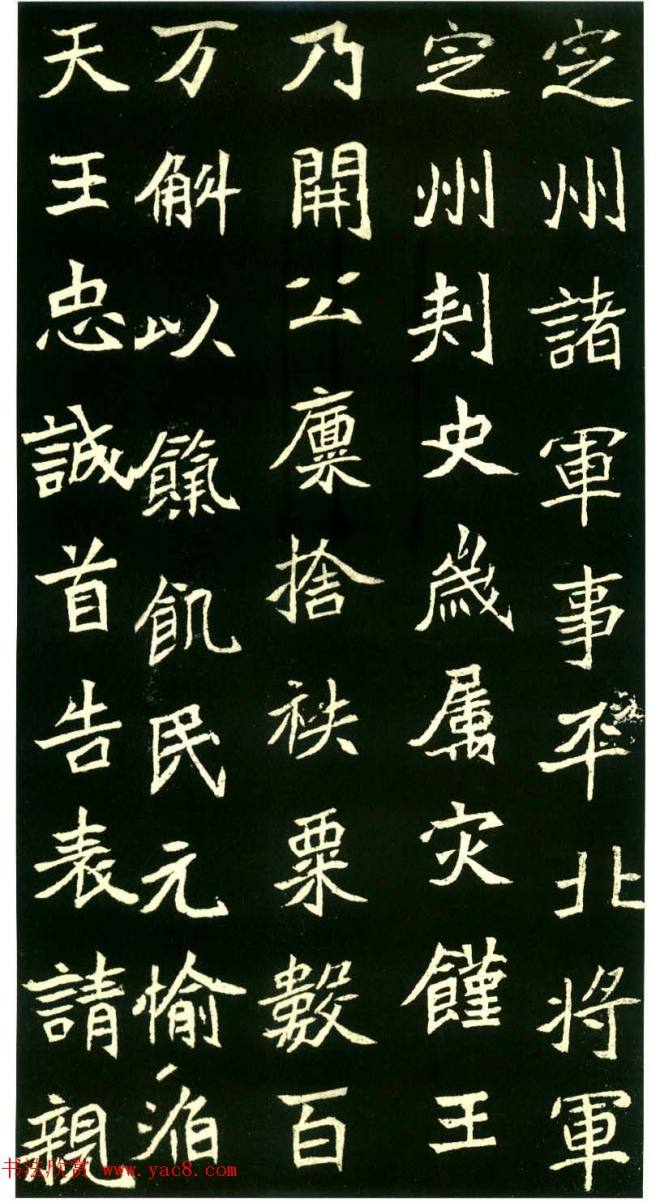 定州諸軍事平北将軍
定州刾史歲属灾饉王
乃開公廩捨秩粟數百
万斛以餼飢民元愉滔
天王忠誠首告表請親
书法欣赏 www.yac8.com